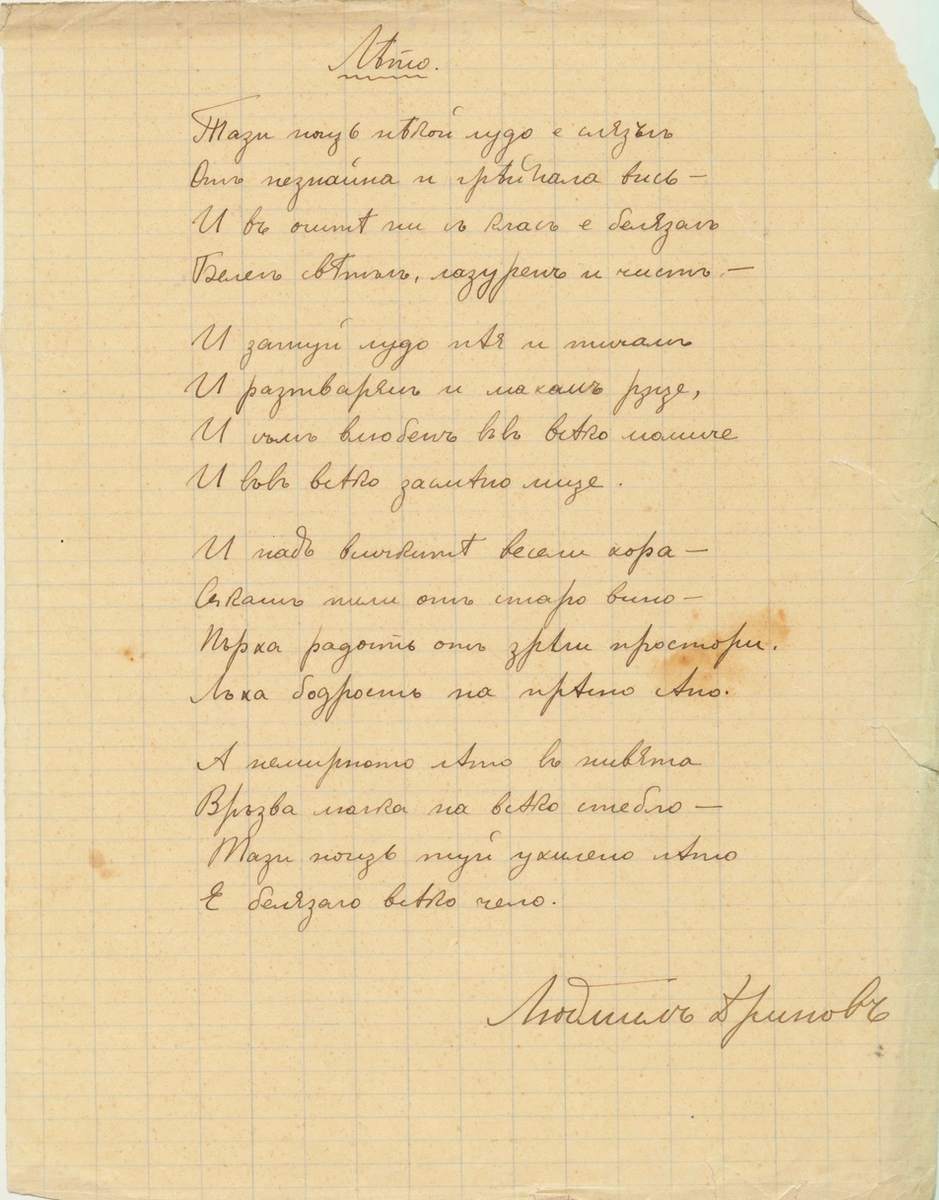 Лѣто.
Тази нощь нѣкой лудо е слязълъ
Отъ незнайна и грѣйнала вись —
И въ очитѣ ни съ класъ е белязалъ
Беленъ свѣтълъ, лазуренъ и чистъ. —
И затуй лудо пѣя и тичамъ
И разтварямъ и махамъ рѫце,
И съмъ влюбенъ въвъ всѣко момиче
И въвъ всѣко засмѣно лице.
И надъ всичкитѣ весели хора —
Сѫкашъ пили отъ старо вино —
Пърха радость отъ зрѣли простори.
Лъха бодрость на прѣсно сѣно.
А немирното лѣто въ нивята
Връзва мачка на всѣко стебло —
Тази нощь туй ухилено лѣто
Е белязало всѣко чело.
Людмилъ Дриновъ